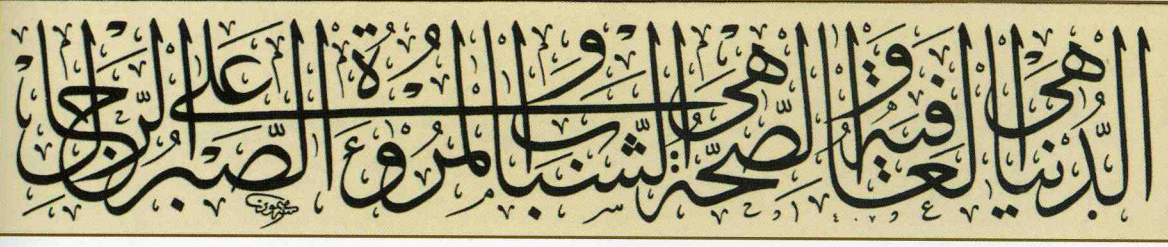 الدُّنيا هيَ العافية و الصِّحّة هيَ الشّباب و المُرُوءَة الصَّبرُ عَلى الرِّجال